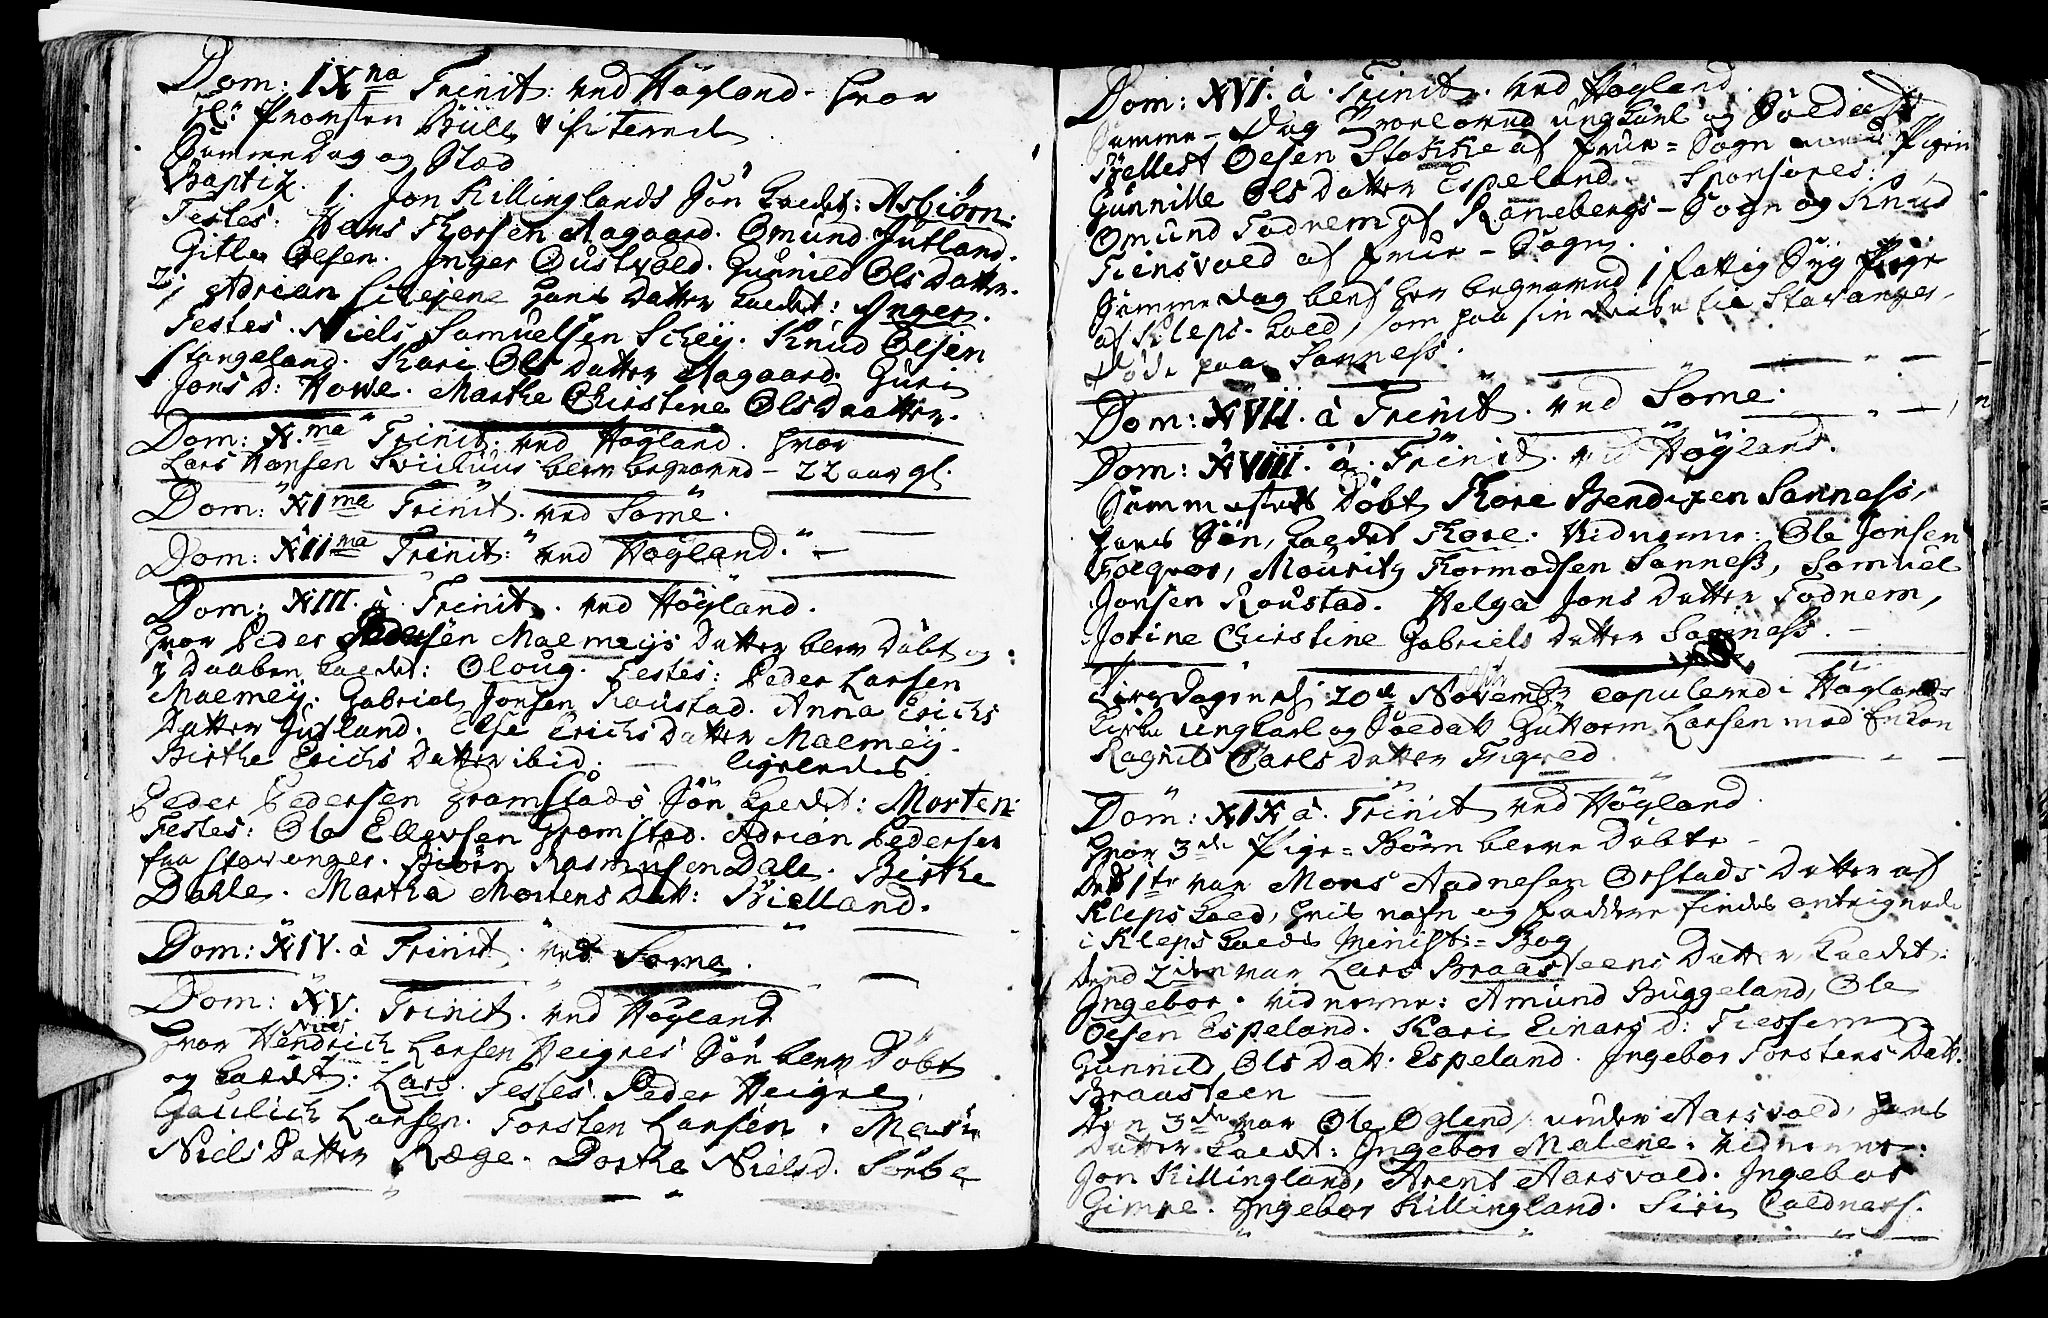 Dom: IX na Trinit: ved Högland. hvor
Hr: Provsten Büll visiterede
Samme Dag og Stæd
Baptiz. 1. Jon Killinglands Sön kaldet: Asbiörn:
Testes: Hans Thorsen Aagaard. Omund Jütland.
Gitle Olsen. Inger Oüstvold. Gunnild Ols Datter.
2/ Adrian hans Datter kaldet: Inger.
Testes. Niels Samuelsen Scheÿ. Knud Olsen
Stangeland. Kari Ols Datter Aagaard. Güri
Jons D: Howe. Marthe Christine Ols Daatter.
Dom: X. ma Trinit. ved Högland. hvor
Lars Hansen blev begraved - 22 aar gl.
Dom: XI ma Trinit. ved Some.
Dom: XII ma Trinit: ved Högland. -
Dom: XIII. à Trinit. ved Högland.
hvor Peder Pedersen Malmeÿs Datter blev Döbt og
i Daaben kaldet: Oloug. Testes: Peder Larsen
Malmeÿ. Gabriel Jonsen Roüstad. Anna Erichs
Datter Jütland. Else Erichs Datter Malmeÿ.
Birthe Erichs Datter ibid. - ligeledes
Peder Pedersen Gramstads Sön kaldet: Morten:
Testes: Ole Ellevsen Gramstad. Adrian Pedersen
fra Stavanger. Biörn Rasmüsen Dale. Birthe
Dahle. Martha Mortens Dat: Bielland.
Dom: XIV. à Trinit. ved Soma.
Dom: XV. Trinit. ved Högland
hvor Hendrich Larsen Heigres Sön blev Döbt
og kaldet: Lars. Testes: Peder Heigre,
Gaülich Larsen. Torsten Larsen. Mari
Niels Datter Ræge. Dorthe Nielsd. Sörbe
Dom: XVI. à Trinit. ved Högland.
Samme Dag Trolovved ungkarl og Soldat
Tellest Olsen Stokke af Frue-Sogn med Pigen
Gunnille Ols Datter Espeland. Sponsores:
Omund Todnem af Ranebergs-Sogn og Knud
Tiensvold af Frue-Sogn.
Samme Dag blef her begraved 1 fattig Syg Pige
af Kleps-Kald, som paa sin Reise til Stavanger,
Döde paa Sanness.
Dom: XVII. à Trinit. ved Some.
Dom: XVIII. à Trinit. ved Högland.
Sammesteds Döbt Thore Bendixen Sanness,
hans Sön, kaldet Thore. Vidnerne: Ole Jonsen
Folgeröe, Mouritz Thormodsen Sanness, Samuel
Jonsen Roustad. Helga Jons Datter Todnem,
Jorine Christine Gabriels Datter Sanness. -
Tirsdagen d: 20de Novembr copulered i Höglands
Kirke ungkarl og Soldat Güttorm Larsen med Enken
Ragnild Carls Datter Tigred.
Dom: XIX à. Trinit ved Högland.
hvor 3de Pige-Börn bleve Döbte -
Den 1te var Mons Aadnesen Orstads Datter af
Kleps Kald, hvis nafn og Faddere findes antegnede
i Kleps Kalds Minist:-Bog
Dend 2den var Lars Braasteens Datter, kaldet:
Ingebor. Vidnerne: Amund Büggeland, Ole
Olsen Espeland. Kari Einars d: Tiessem
Gunnild Ols Dat: Espeland. Ingebor Torstens Dat.
Braasteen -
Den 3de var Ole Oglend, under Aarsvold, hans
Datter kaldet: Ingebor Malene. Vidnerne:
Jon Killingland, Arent Aarsvold. Ingebor
Gimre. Ingebor Killingland. Siri Coldness.